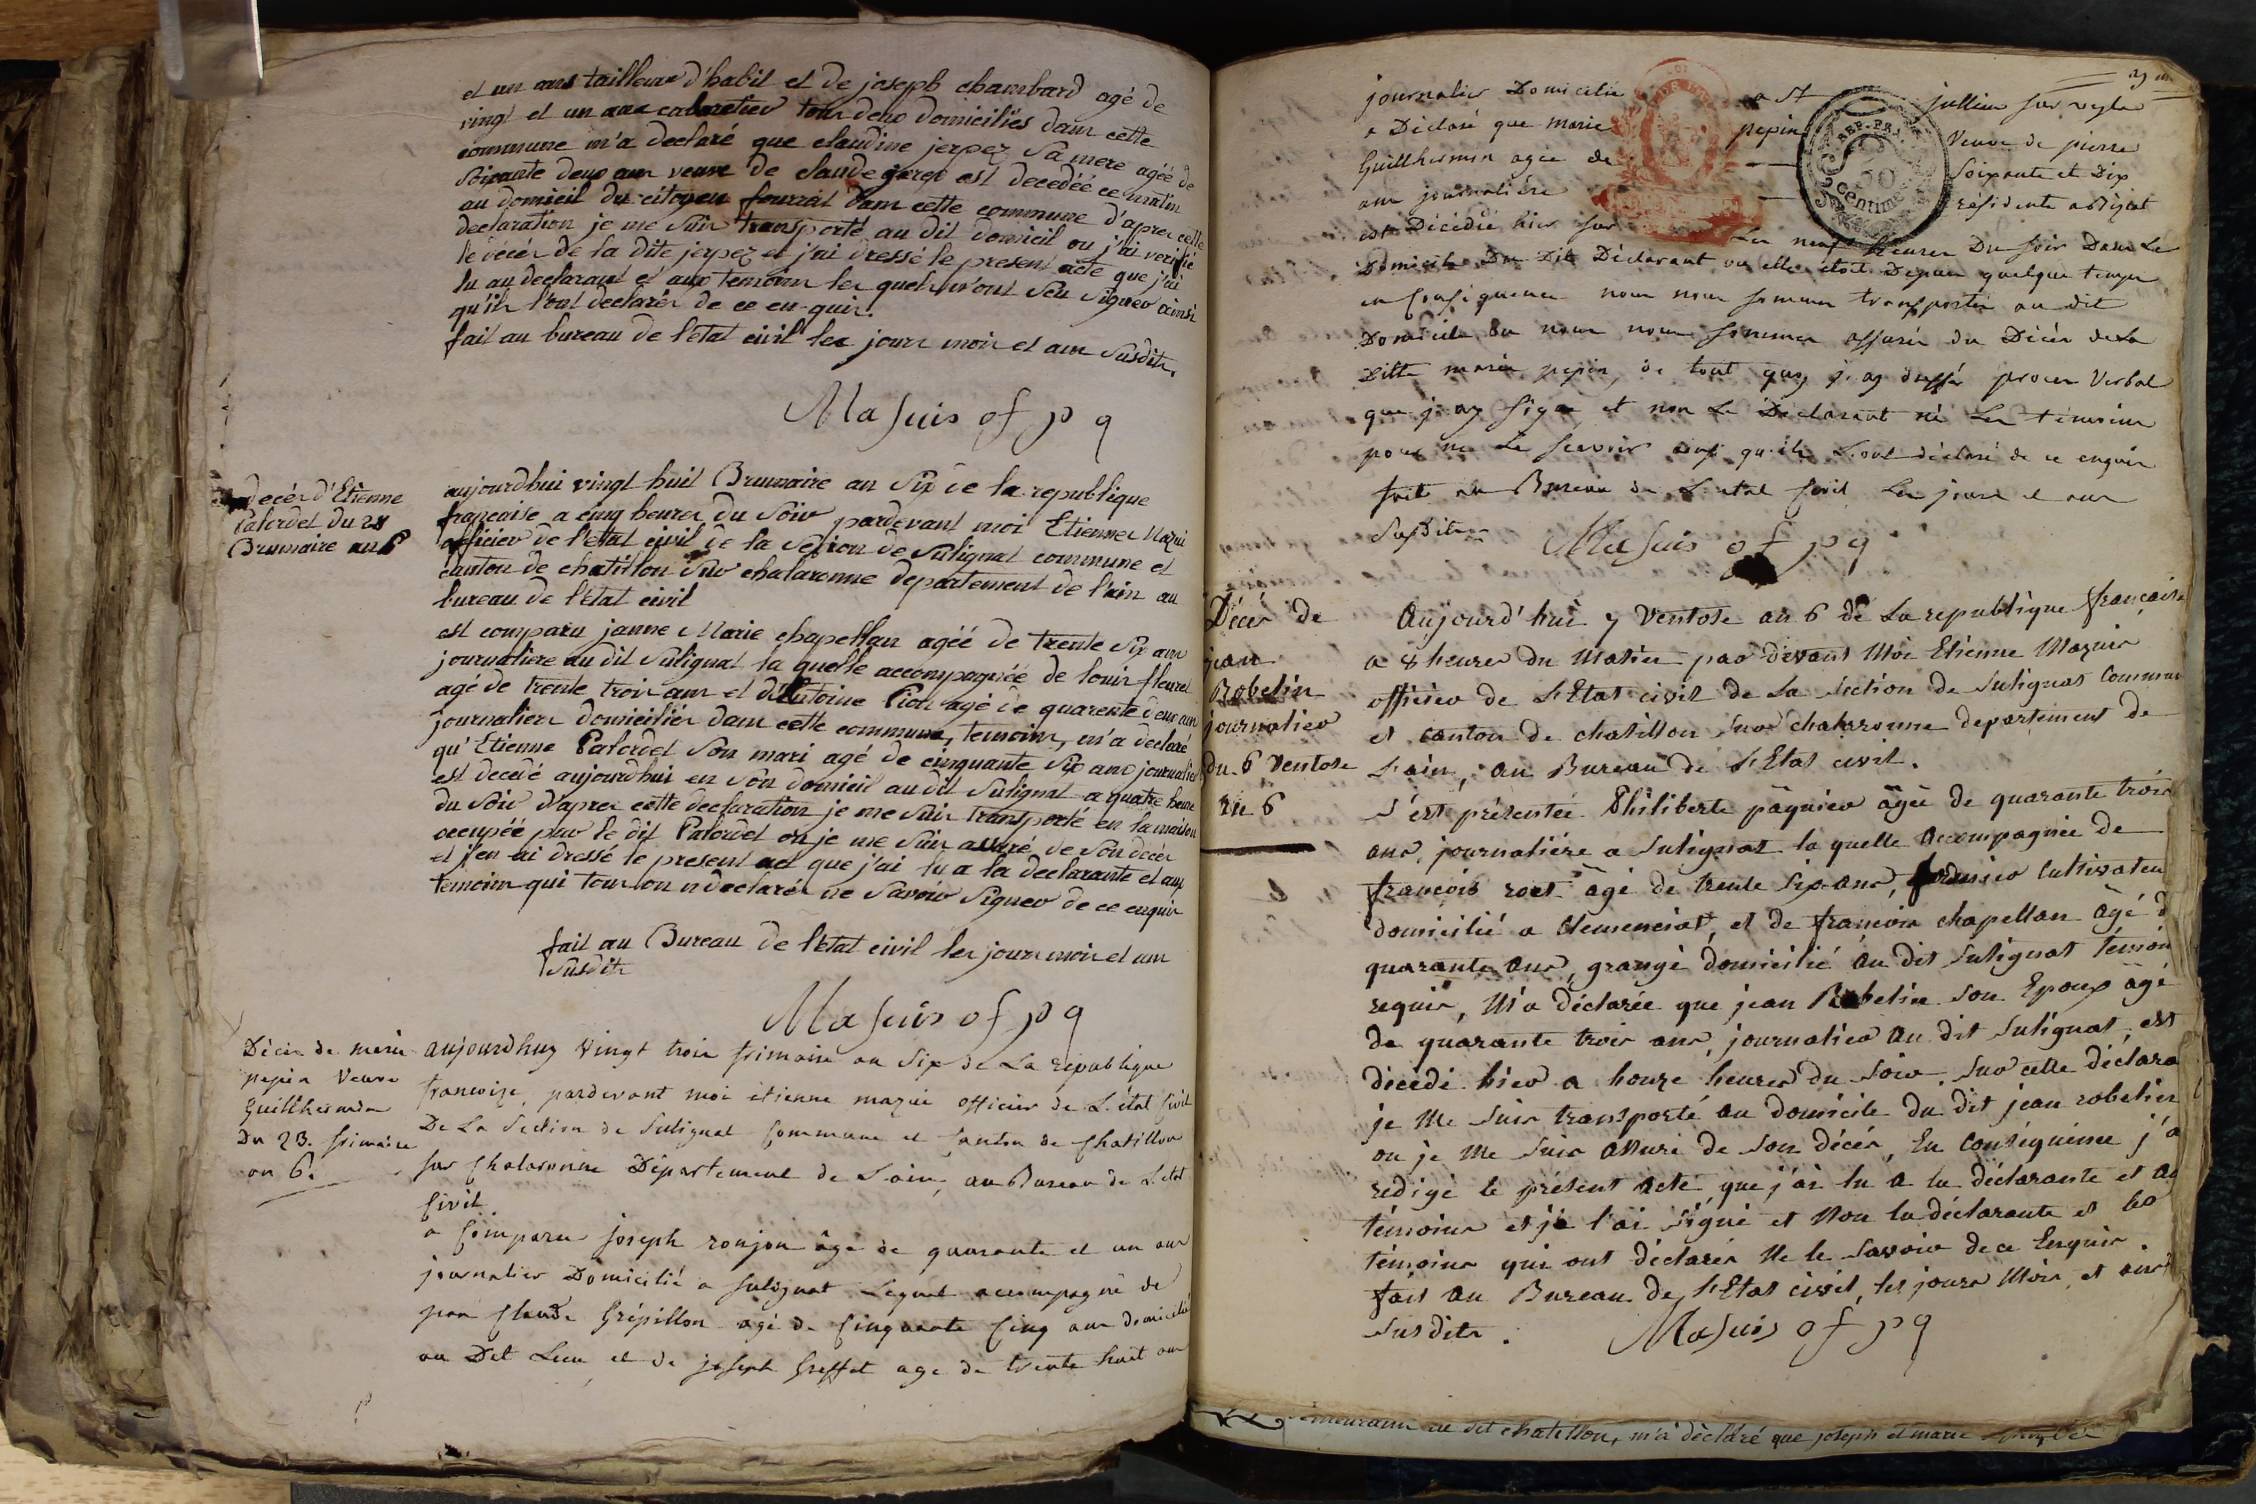 et un ans tailleur d'habit et de joseph chambard agé de
vingt et un ans cabaretier tous deux domiciliés dans cette
commune m'a declaré que claudine jerpez sa mere agée de
soixante deux ans veuve de claude est decedée ce matin
au domicil du citoyen fourrat dans cette commune d'apres cette
declaration je me suis transporté au dit domicil ou j'ai verifié
le décés de la dite jerpez et j'ai dressé le present acte que j'ai
lu au declarant et aux temoins les quels n'ont seu signer ainsi
qu'ils l'ont declarés de ce enquis.
fait au bureau de l'etat civil les jours mois et ans susdits.
Masuis of p q
decés d'Etienne
Palordet du 28
Brumaire an 6
aujourdhui vingt huit Brumaire an Six de la republique
francaise a cinq heures du soir pardevant moi Etienne Mazui
officier de l'etat civil de la section de Sulignat commune et
canton de chatillon sur chalaronne departement de l'ain au
bureau de l'etat civil
est comparu janne Marie chapellan agée de trente six ans
journaliere au dit Sulignat la quelle accompagnée de louis fleuret
agé de trente trois ans et d'Antoine Pion agé de quarente deux ans
journaliers domiciliés dans cette commune, temoins, m'a declaré
qu'Etienne Palordet son mari agé de cinquante six ans journalier
est decedé aujourdhui en son domicil au dit Sulignat a quatre heure
du soir d'apres cette declaration je me suis transporté en la maison
occupée par le dit Palordet ou je me suis assuré de son decés
et j'en ai dressé le present act que j'ai lu a la declarante et aux
temoins qui tous on n declarés ne savoir signer de ce enquis
fait au Bureau de l'etat civil les jours mois et ans
susdits
Masuis of p q
Décés de marie
pepin veuve
Guillhermin
du 23. frimaire
an 6.
aujourdhuy vingt trois frimaire an six de La republique
francoize, pardevant moi etienne mazui officier de L'etat Civil
De La Section de Sulignat Commune et Canton de Chatillon
sur Chalaronne Département de L'ain, au Bureau de L'etat
Civil
a Comparu joseph ronjon âgé de quarante et un ans
journalier Domicilié a sulignat Lequel accompagné de
par Claude Grépillon agé de Cinquante Cinq ans domicilié
au Dit Lieu, et de joseph Greffet age de trente huit ans
journalier Domicilié a St jullien sur veyle
a Déclaré que marie pepin Veuve de pierre
Guillhermin agée de Soixante et Dix
ans journaliére résidente
est Décédée hier sur Les neuf heures Du soir Dans Le
Domicile Du Dit Déclarant ou elle étoit Depuis quelque temps
en Consequence nous nous sommes transportés au dit
Domicile ou nous nous sommes assurés du Décés de La
Ditte marie pepin, de tout quoy j'ay dressés proces Verbal
que j'ay signé et non Le Déclarant ni Les témoins
pour ne Le scavoir ainsi qu'ils L'ont déclaré de ce enquis
fait au Bureau de L'etat Civil Les jours et ans
Susdits
Masuis of p q
REP. FR.
50
Centimes
Décés de
jean
Robelin
journalier
du 6 Ventose
an 6
Aujourd'hui 7 Ventose an 6 de La republique française
a 8 heures du Matin par devant Moi Etienne Mazuis
officier de l'Etat civil de la section de Sulignat Commune
et canton de chatillon sur chalaronne departement de
L'ain, au Bureau de l'Etat civil.
s'est présentée Philiberte pâquier âgée de quarante trois
ans, journaliére a Sulignat la quelle accompagnée de
françois roet âgé de trente six ans, Cultivateur
domicilié a Clemenciat, et de françois chapellan âgé d
quarante ans, grangé domicilié au dit Sulignat témoin
requis, M'a déclarée que jean Robelin son Epoux âgé
de quarante trois ans, journalier au dit Sulignat, est
décédé hier a honze heures du soir. sur cette déclara
je Me suis transporté au domicile du dit jean robelin
ou je Me suis assuré de son décés, En conséquence j'a
redigé le présent acte, que j'ai lu a la déclarante et au
témoins et je l'ai signé et Non la déclarante et les
témoins qui ont déclarés Ne le savoir de ce Enquis.
fait au Bureau de l'Etat civil, les jours Mois, et ans
susdits.
Masuis of p q
demeurant au dit chatillon, m'a déclaré que joseph et marie